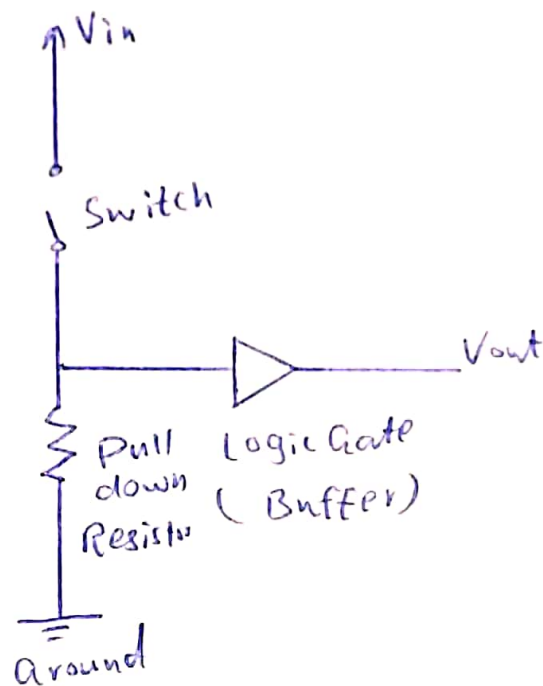 Vin
Switch
Vout
Pull
down
Resistor
Logic Gate
(Buffer)
Ground